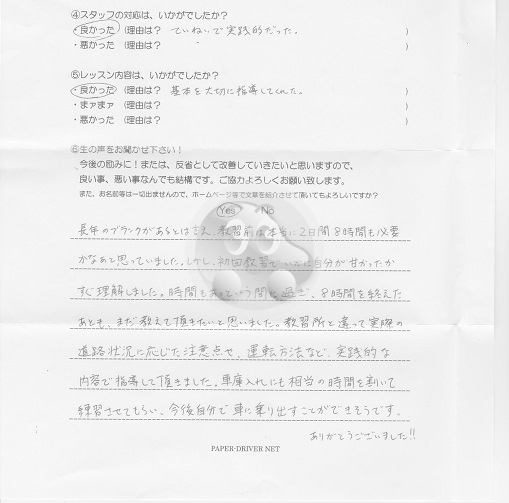 ④スタッフの対応は、いかがでしたか？
・良かった （理由は？ ていねいで実践的だった。 ）
・悪かった （理由は？ ）
⑤レッスン内容は、いかがでしたか？
・良かった （理由は？ 基本を大切に指導してくれた。 ）
・まァまァ （理由は？ ）
・悪かった （理由は？ ）
⑥生の声をお聞かせ下さい！
今後の励みに！または、反省として改善していきたいと思いますので、
良い事、悪い事なんでも結構です。ご協力よろしくお願い致します。
また、お名前等は一切出ませんので、ホームページ等で文章を紹介させて頂いてもよろしいですか？
Yes ・ No
長年のブランクがあるとはさえ、教習前は本当に2日間8時間も必要
かなあと思っていました。しかし、初回教習でいかに自分が甘かったか
すぐ理解しました。時間もあっという間に過ぎ、8時間を終えた
あとも、まだ教えて頂きたいと思いました。教習所と違って実際の
道路状況に応じた注意点や、運転方法など、実践的な
内容で指導して頂きました。車庫入れにも相当の時間を割いて
練習させてもらい、今後自分で車に乗り出すことができそうです。
ありがとうございました!!
PAPER-DRIVER NET